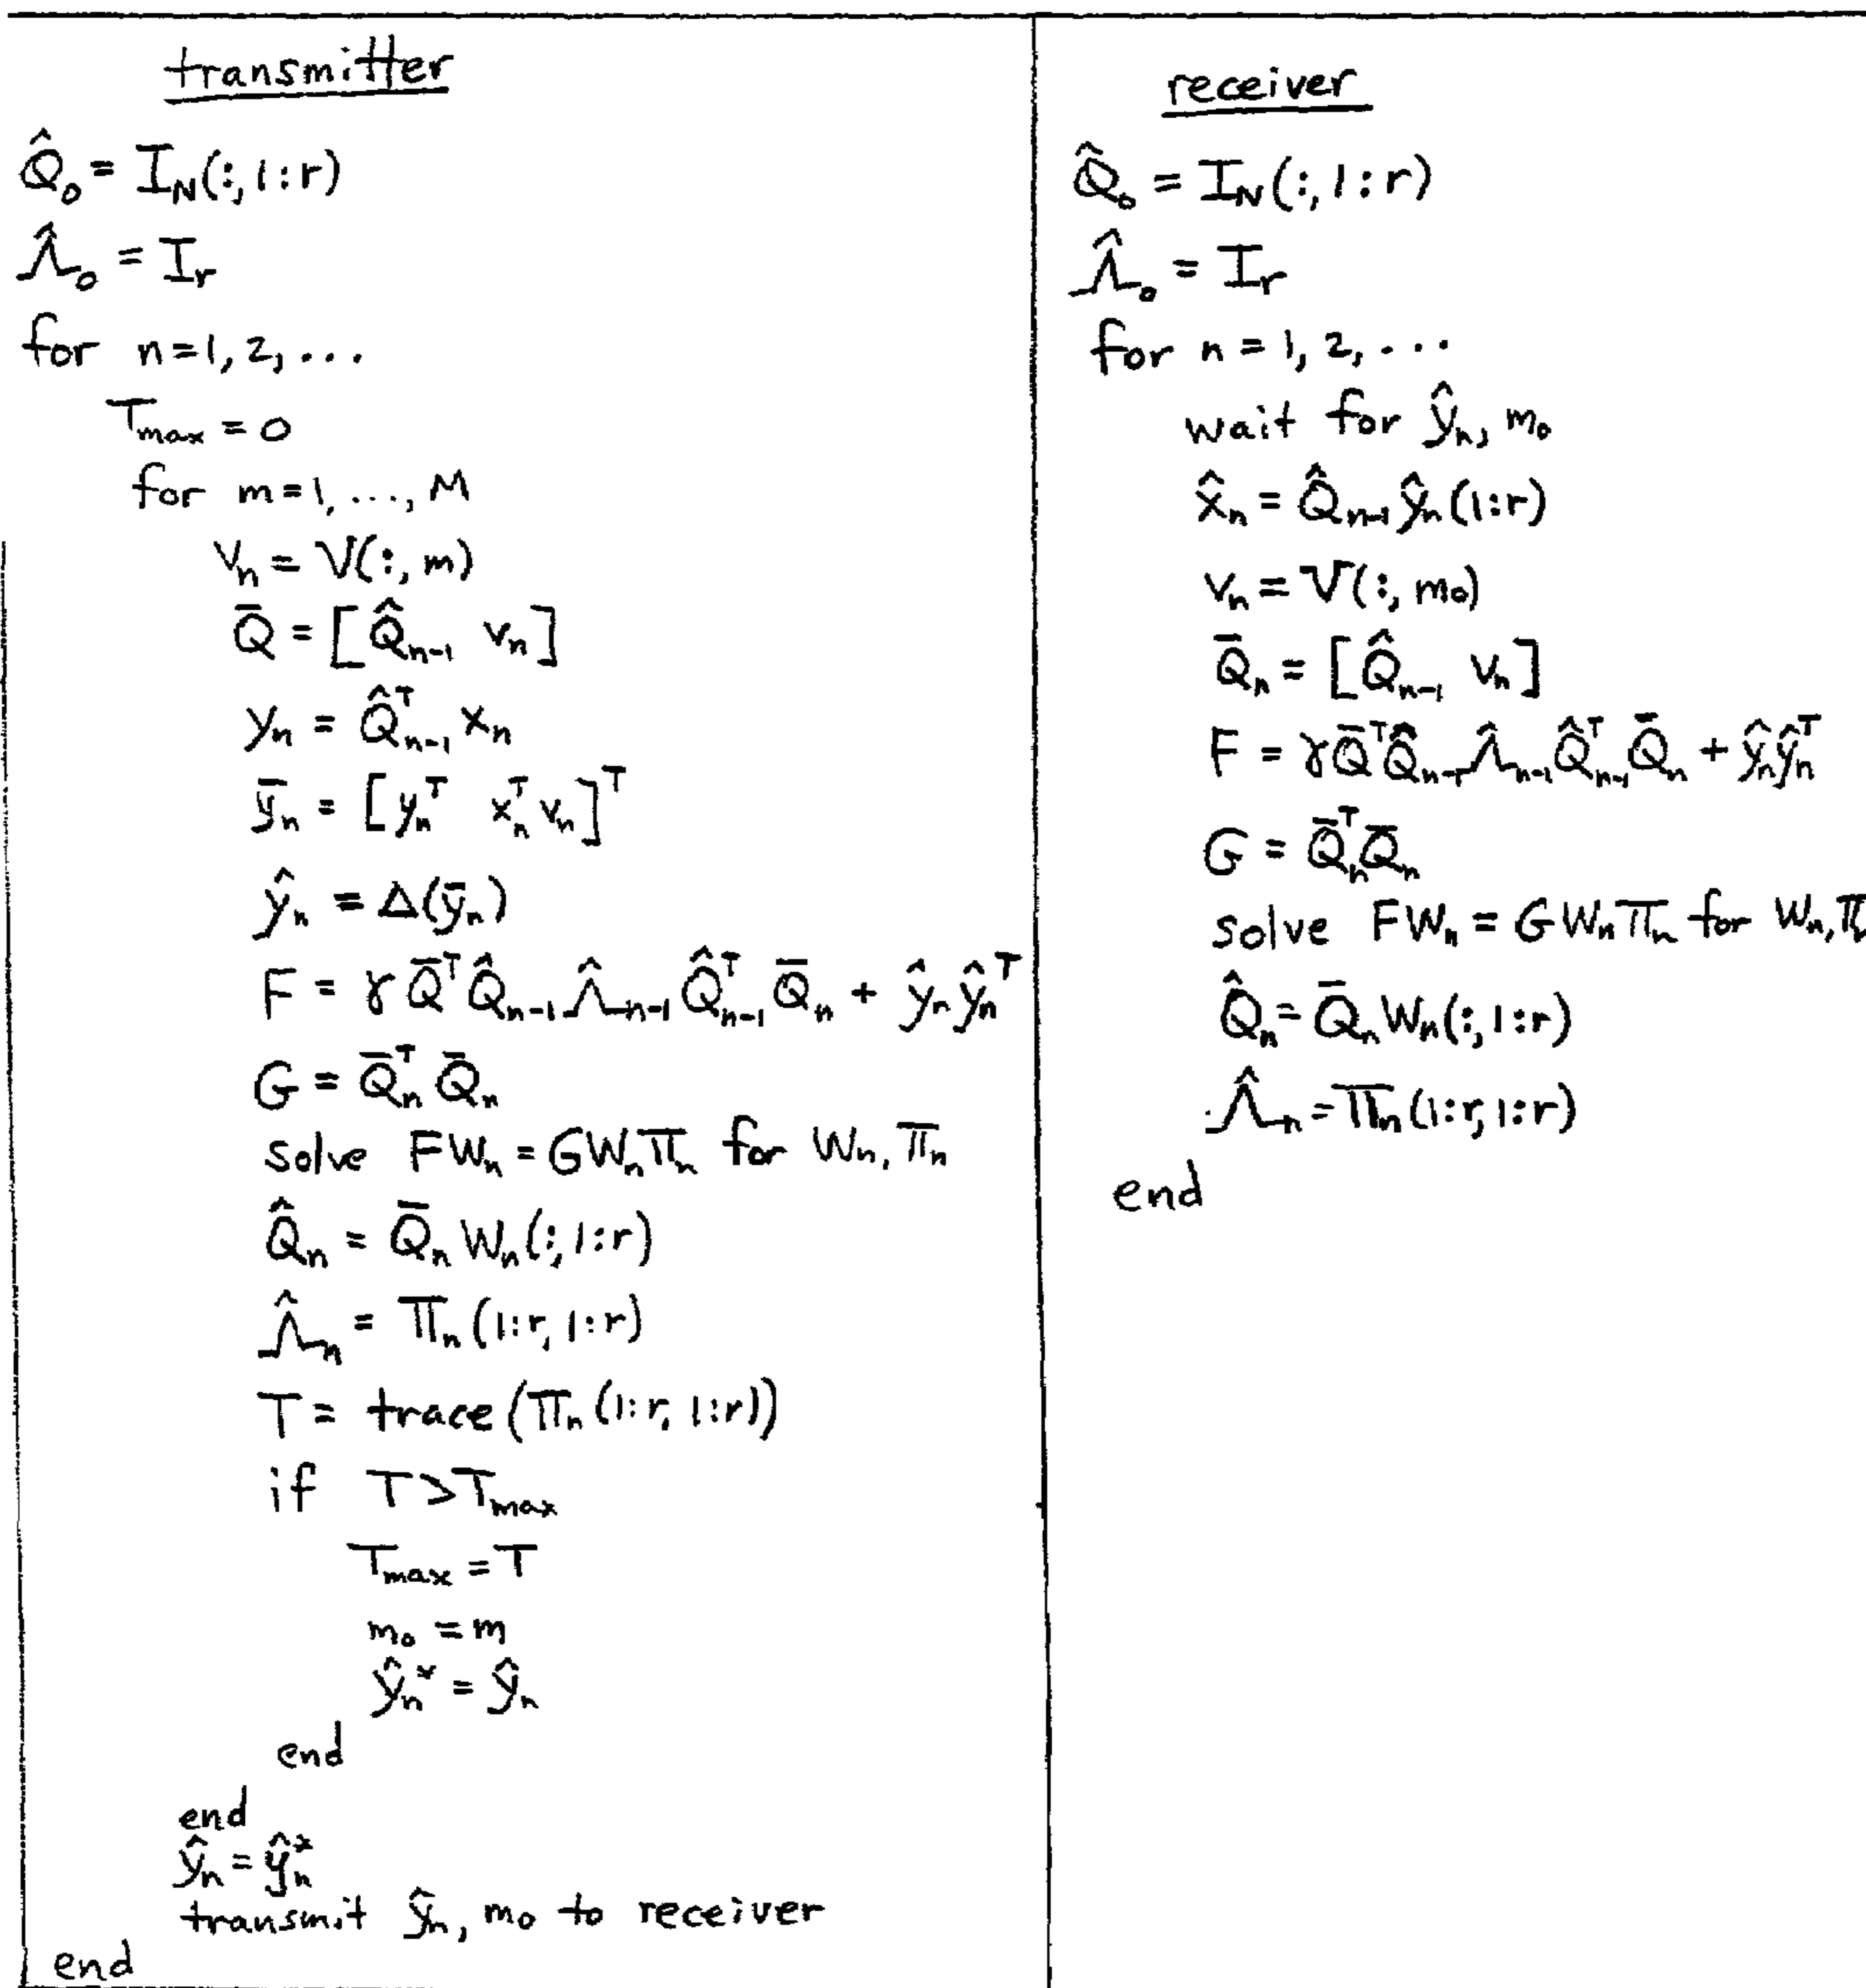 transmitter
Q̂₀ = I_N(:, 1:r)
Λ̂₀ = I_r
for n=1, 2, ...
T_max = 0
for m=1, ..., M
v_n = V(:, m)
Q̄ = [Q̂_{n-1} v_n]
y_n = Q̂ᵀ_{n-1} x_n
ȳ_n = [y_nᵀ x_nᵀ v_n]ᵀ
ŷ_n = Δ(ȳ_n)
F = γ Q̄ᵀ Q̂_{n-1} Λ̂_{n-1} Q̂ᵀ_{n-1} Q̄_n + ŷ_n ŷ_nᵀ
G = Q̄_nᵀ Q̄_n
solve FW_n = GW_n Π_n for W_n, Π_n
Q̂_n = Q̄_n W_n(:, 1:r)
Λ̂_n = Π_n(1:r, 1:r)
T = trace(Π_n(1:r, 1:r))
if T > T_max
T_max = T
m₀ = m
ŷ_n* = ŷ_n
end
end
ŷ_n = ŷ_n*
transmit ŷ_n, m₀ to receiver
end
receiver
Q̂₀ = I_N(:, 1:r)
Λ̂₀ = I_r
for n = 1, 2, ...
wait for ŷ_n, m₀
x̂_n = Q̂_{n-1} ŷ_n(1:r)
v_n = V(:, m₀)
Q̄_n = [Q̂_{n-1} v_n]
F = γ Q̄ᵀ Q̂_{n-1} Λ̂_{n-1} Q̂ᵀ_{n-1} Q̄_n + ŷ_n ŷ_nᵀ
G = Q̄_nᵀ Q̄_n
solve FW_n = GW_n Π_n for W_n, Π_n
Q̂_n = Q̄_n W_n(:, 1:r)
Λ̂_n = Π_n(1:r, 1:r)
end